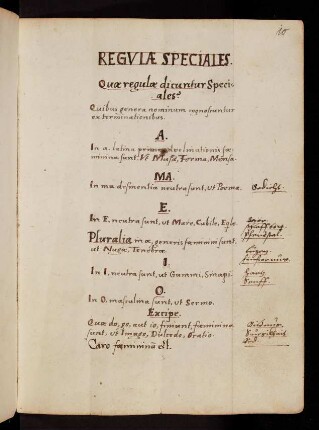 REGULÆ SPECIALES.
Quæ regulæ dicuntur Speci-
ales?
Quibus genera nominum cognoscuntur
ex terminationibus.
A.
In a. latina primæ declinationis fæ-
minina sunt, Vt Musa, Forma, Mensa.
MA.
In ma desinentia neutra sunt, ut Poema.
E.
In E, neutra sunt, ut Mare, Cubile,
Pluralia in æ, generis fæminini sunt,
ut Nugæ, Tenebræ.
I.
In I, neutra sunt, ut Gummi, Sinapi.
O.
In O, masculina sunt, ut Sermo.
Excipe.
Quæ do, go, aut io, finiunt, fæminina
sunt, ut Imago, Dulcedo, Oratio.
Caro fæminini est.